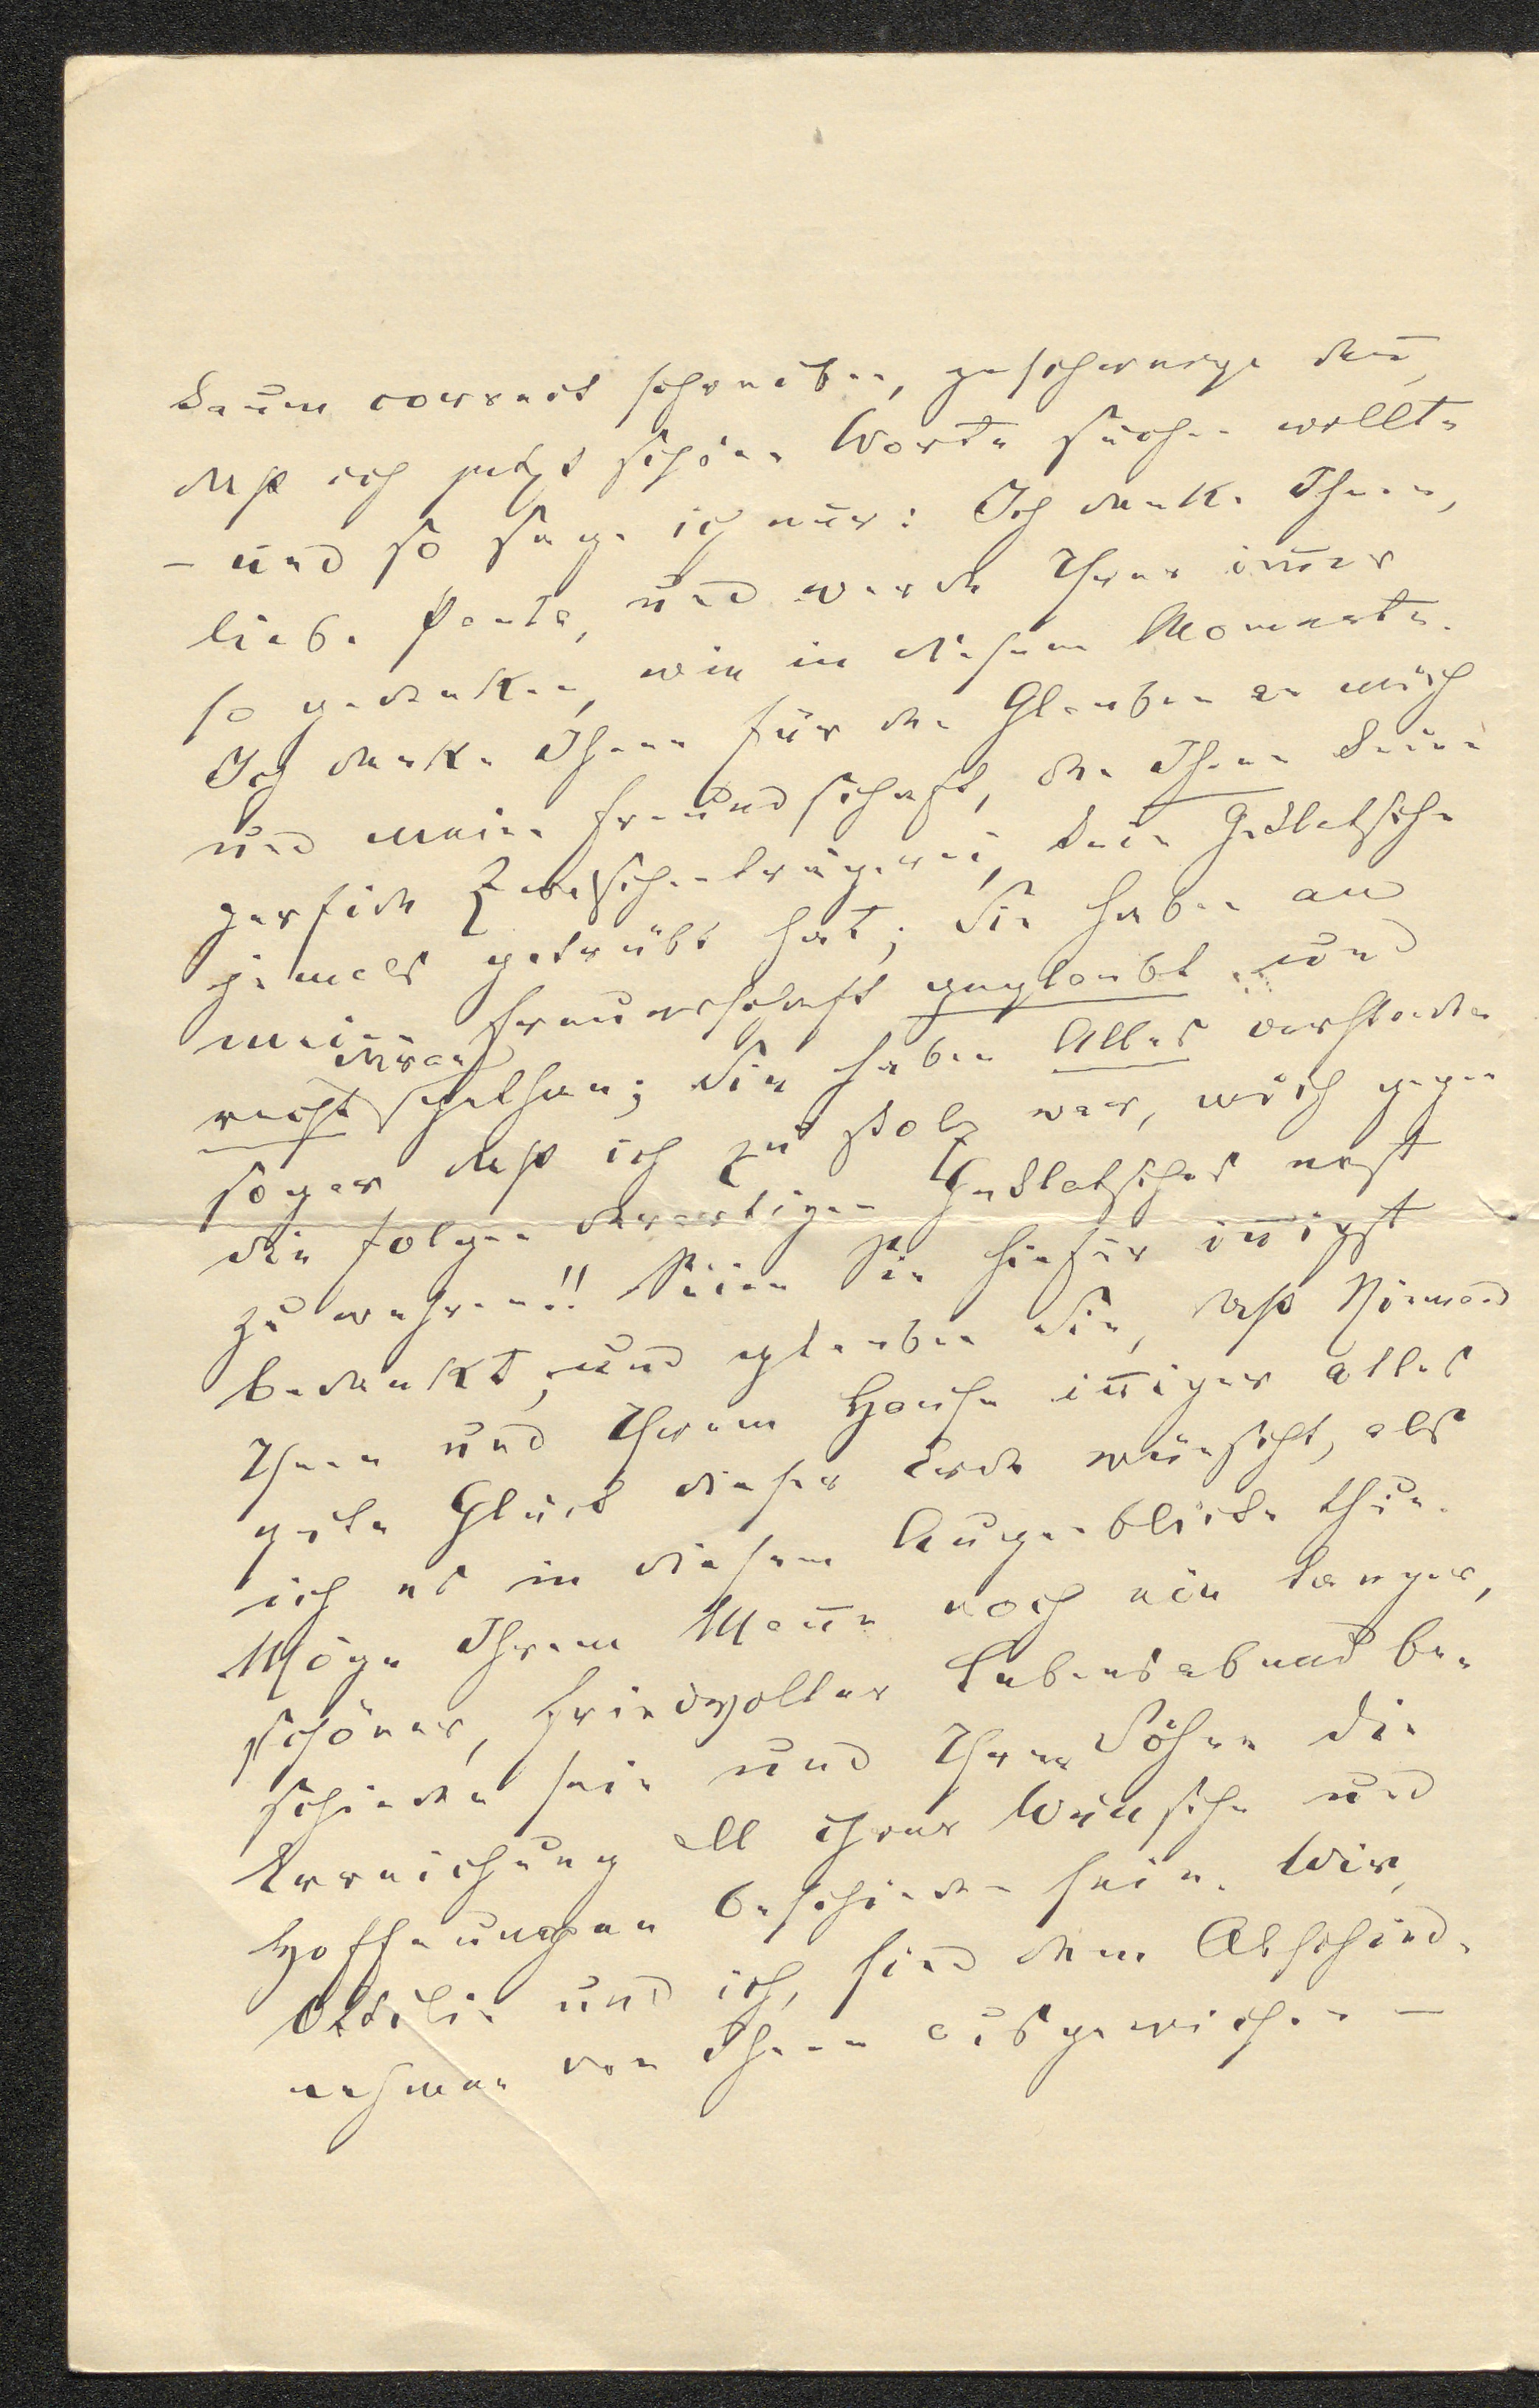 kaum correct schreiben, geschweige deñ,
daß ich jetzt schöne Worte suchen wollte
– und so sage ich nur: Ich danke Ihnen,
liebe und werde Ihrer im̃er
so gedenken, wie in diesem Momente.
Ich danke Ihnen für den Glauben an mich
und meine Freundschaft, den Ihnen keine
perfide Zwischenträgerei, kein Geklatsche
jemals getrübt hat; Sie haben an
meine Freundschaft geglaubt und
recht daran gethan; Sie haben Alles verstanden
sogar, daß ich zu stolz war, mich gegen
die Folgen derartigen Geklatsches erst
zu wehren!! Seien Sie hiefür iñigst
bedankt, und glauben Sie, daß Niemand
Ihnen und Ihrem Hause iñiger alles
gute Glück dieser Erde wünscht, als
ich es in diesem Augenblicke thue.
Möge Ihrem Mañe noch ein langer,
schöner, friedvoller Lebensabend be-
schieden sein und Ihren Söhnen die
Erreichung all ihrer Wünsche und
Hoffnungen beschieden sein. Wir,
Ottilie und ich, sind dem Abschied-
nehmen von Ihnen ausgewichen –